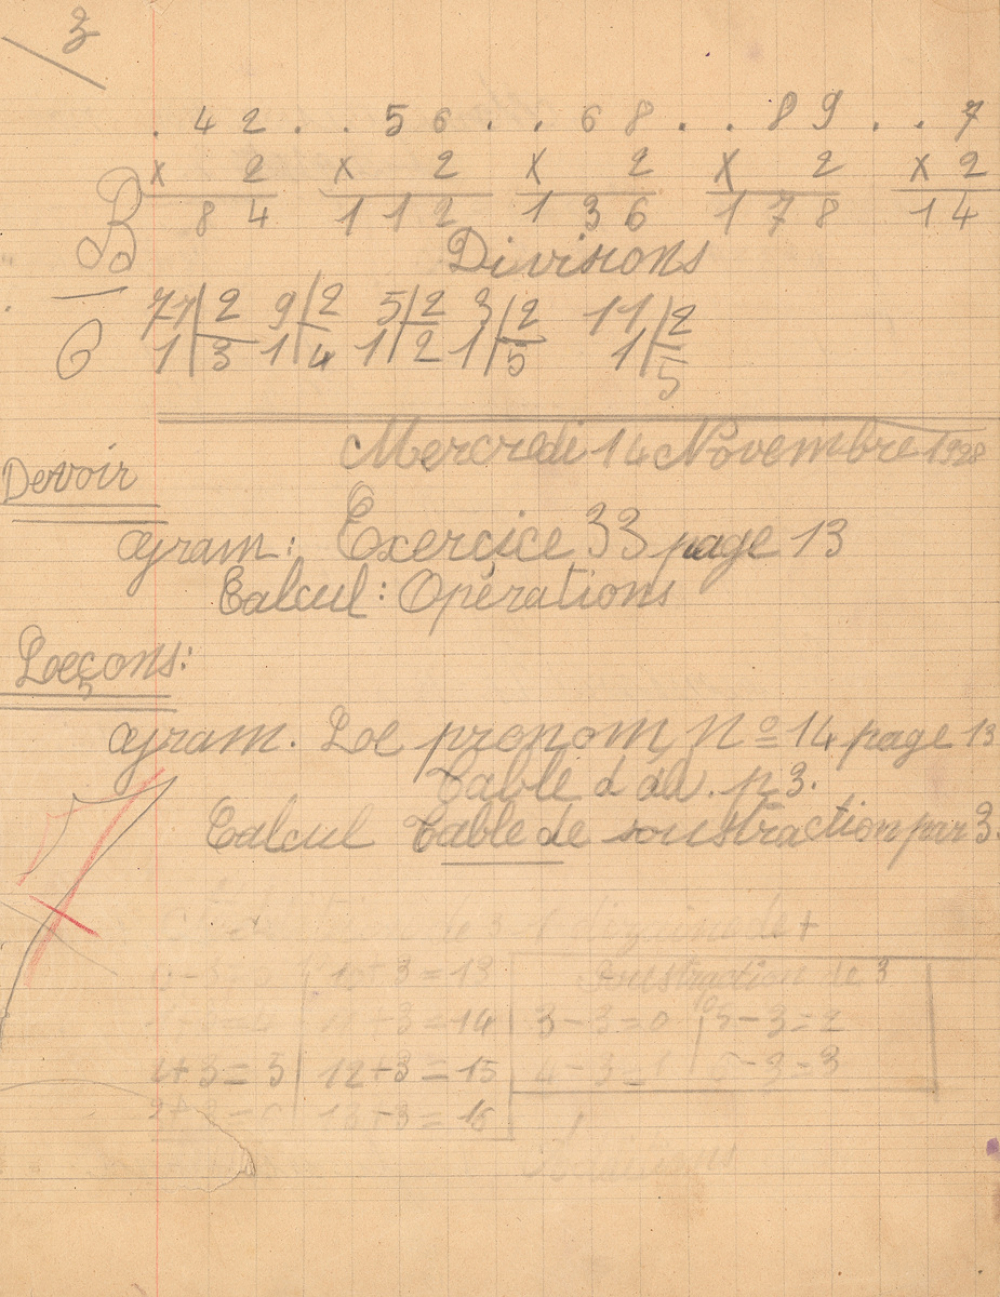 3
. 42 . . 56 . . 68 . . 89 . . 7
x 2 x 2 x 2 x 2 x 2
84 112 136 178 14
B
Divisions
9 2 5 2 3 2 11 2
6 1 3 1 4 1 2 1 5 1 5
Mercredi 14 Novembre 1928
Devoir
gram: Exerçice 33 page 13
Calcul: Opérations
Leçons:
gram. Le pronom n° 14 page 13
Table d' . p 3.
Calcul Table de soustraction par 3
de 3 1 dizaine de +
10 + 3 = 13 Soustraction de 3
+ 3 = 14 3 - 3 = 0 5 - 3 = 2
2 + 3 = 5 12 + 3 = 15 4 - 3 = 1 - 3 = 3
13 + 3 = 16